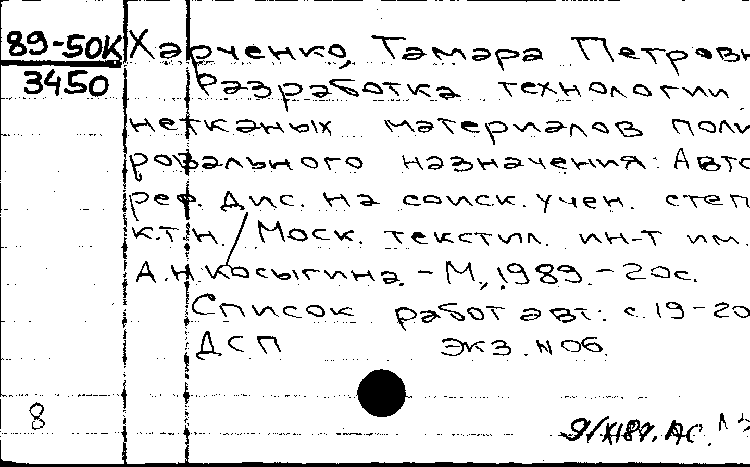 89-50К Харченко, Тамара Петровн
3450 Разработка технологии
нетканых материалов поли
ровального назначения: Авто
реф. Дис. на соиск. учен. степ
к.т.н. / Моск. текстил. ин-т им.
А.Н. Косыгина. - М., 1989. - 20с.
Список работ авт.: с. 19-20
ДСП ЭКЗ. N 06.
8